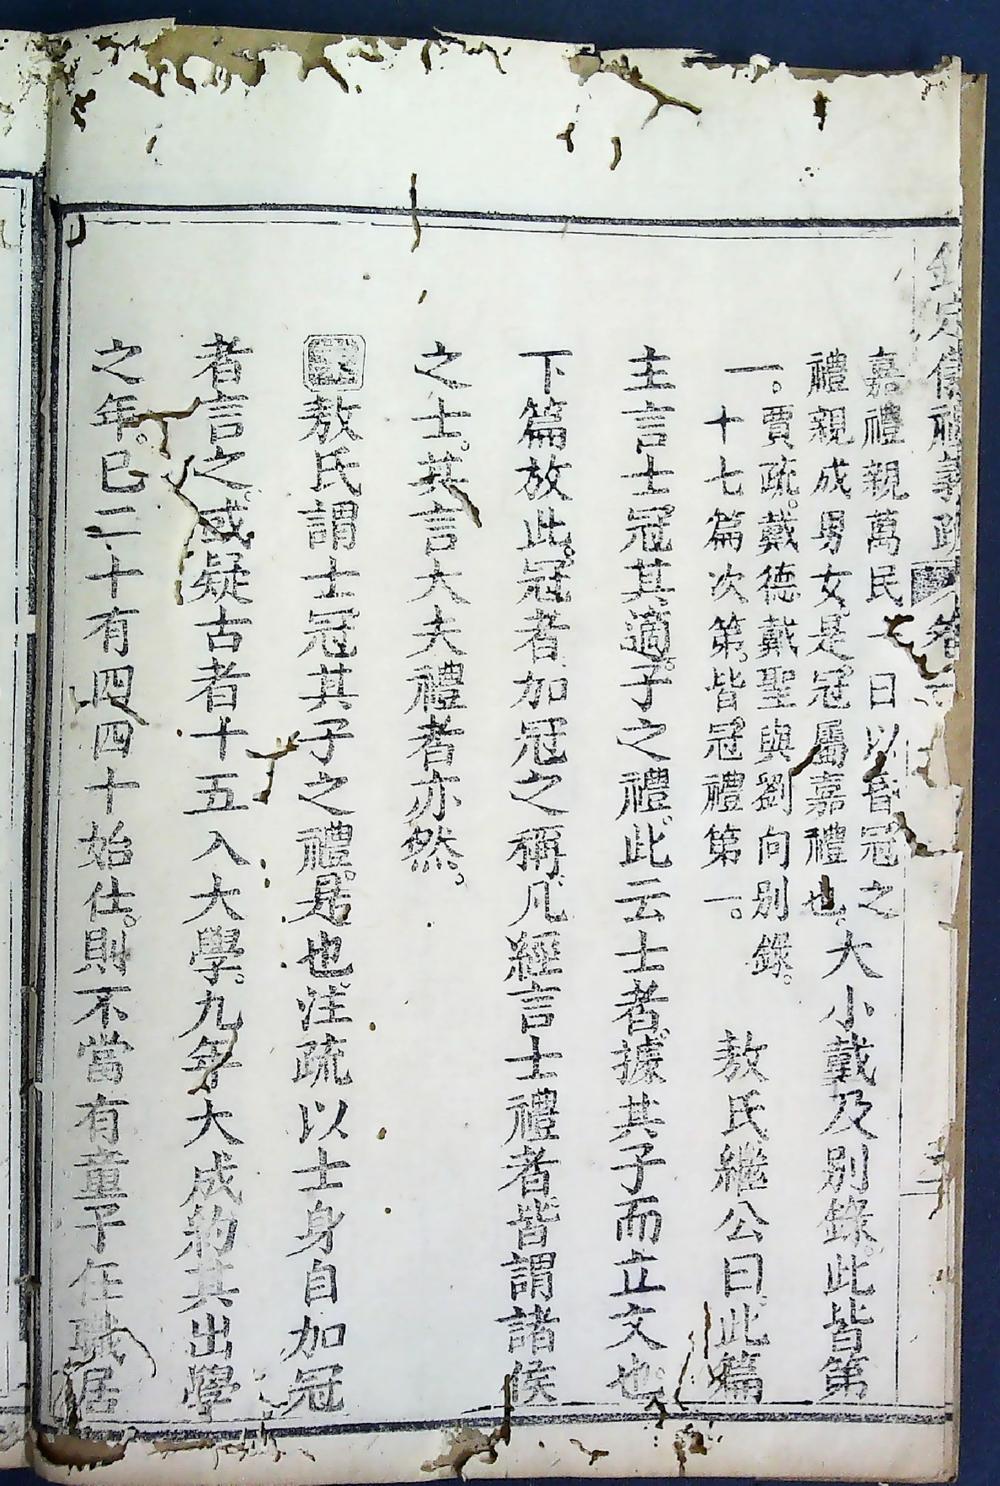 欽定儀禮義疏 卷
嘉禮親萬民一曰以昏冠之
禮親成男女是冠屬嘉禮也。大小戴及別錄。此皆第
一。賈疏。戴德戴聖與劉向別錄。
十七篇次第。皆冠禮第一。敖氏繼公曰。此篇
主言士冠其適子之禮。此云士者。據其子而立文也。
下篇放此。冠者。加冠之稱。凡經言士禮者皆謂諸侯
之士。其言大夫禮者亦然。
敖氏謂士冠其子之禮。是也。注疏以士身自加冠
者言之。或疑古者十五入大學。九年大成。約其出學
之年。已二十有四。四十始仕。則不當有童子任職居